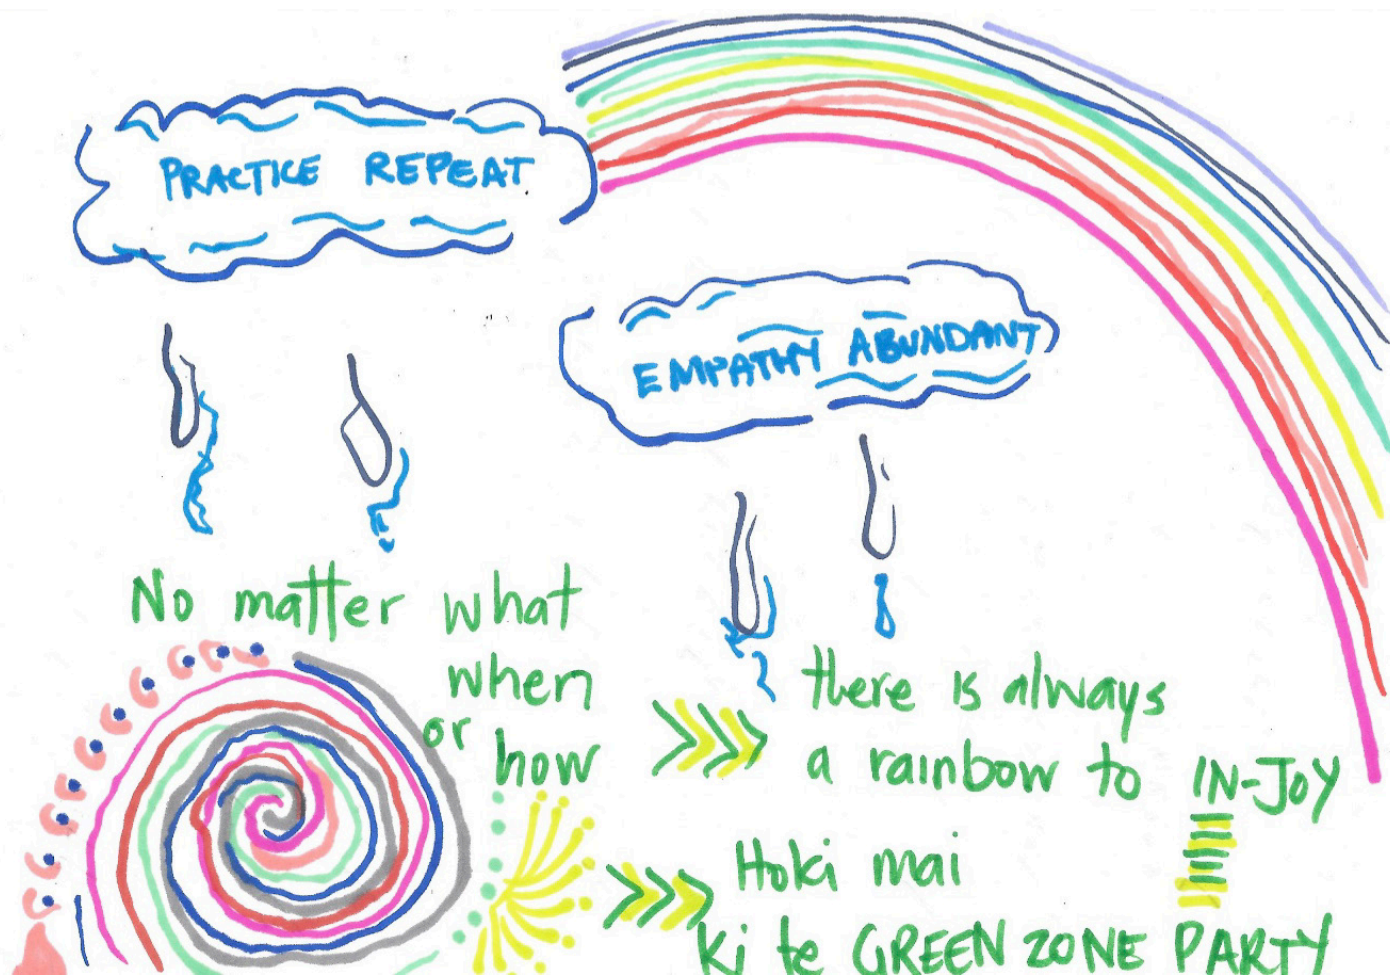 PRACTICE REPEAT
EMPATHY ABUNDANT
No matter what
when
or how
there is always
a rainbow to IN-JOY
Hoki mai
ki te GREEN ZONE PARTY